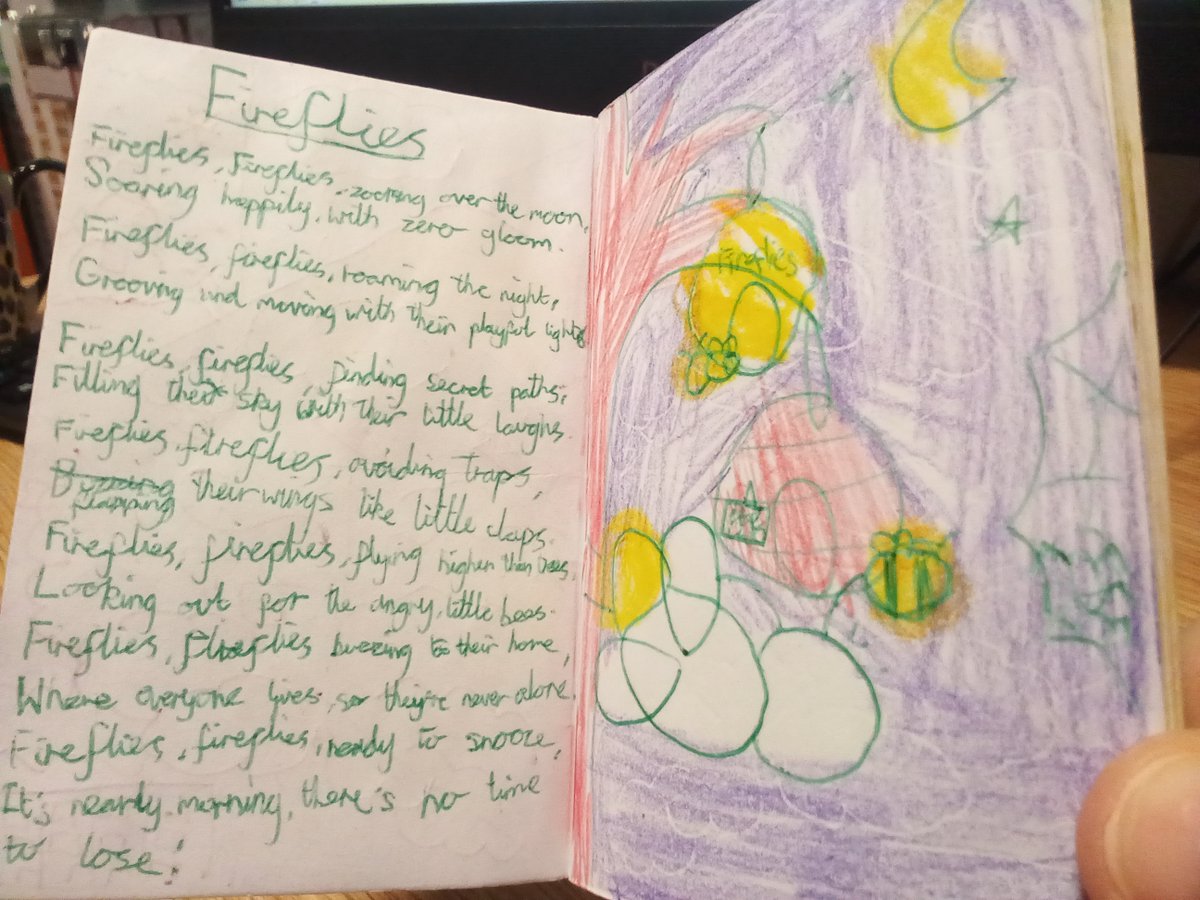 Fireflies
Fireflies, Fireflies, zooming over the moon,
Soaring happily, with zero gloom.
Fireflies, fireflies, roaming the night,
Grooving and moving with their playful lights
Fireflies, fireflies, finding secret paths,
Filling the sky with their little laughs.
Fireflies, fireflies, avoiding traps,
Buzzing their wings like little claps.
flapping
Fireflies, fireflies, flying higher than trees,
Looking out for the angry, little bees.
Fireflies, fireflies buzzing to their home,
Where everyone lives, so they're never alone.
Fireflies, fireflies, ready to snooze,
It's nearly morning, there's no time
to lose!
Fireflies